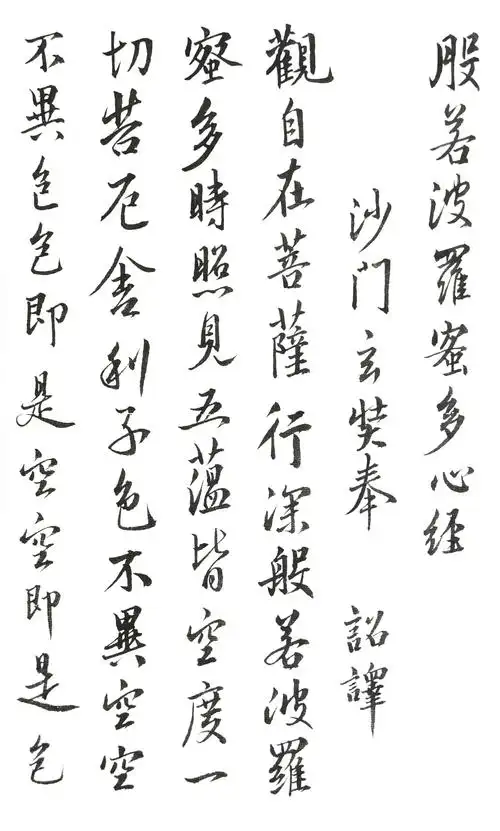 般若波羅蜜多心經
沙門玄奘奉 詔譯
觀自在菩薩行深般若波羅
蜜多時照見五蘊皆空度一
切苦厄舍利子色不異空空
不異色色即是空空即是色